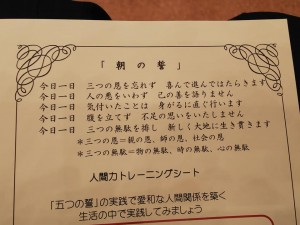 「朝の誓」
今日一日 三つの恩を忘れず 喜んで進んではたらきます
今日一日 人の悪をいわず 己の善を語りません
今日一日 気付いたことは 身がるに直ぐ行います
今日一日 腹を立てず 不足の思いをいたしません
今日一日 三つの無駄を排し 新しく大地に生き貫きます
＊三つの恩=親の恩、師の恩、社会の恩
＊三つの無駄=物の無駄、時の無駄、心の無駄
人間力トレーニングシート
「五つの誓」の実践で愛和な人間関係を築く
生活の中で実践してみましょう